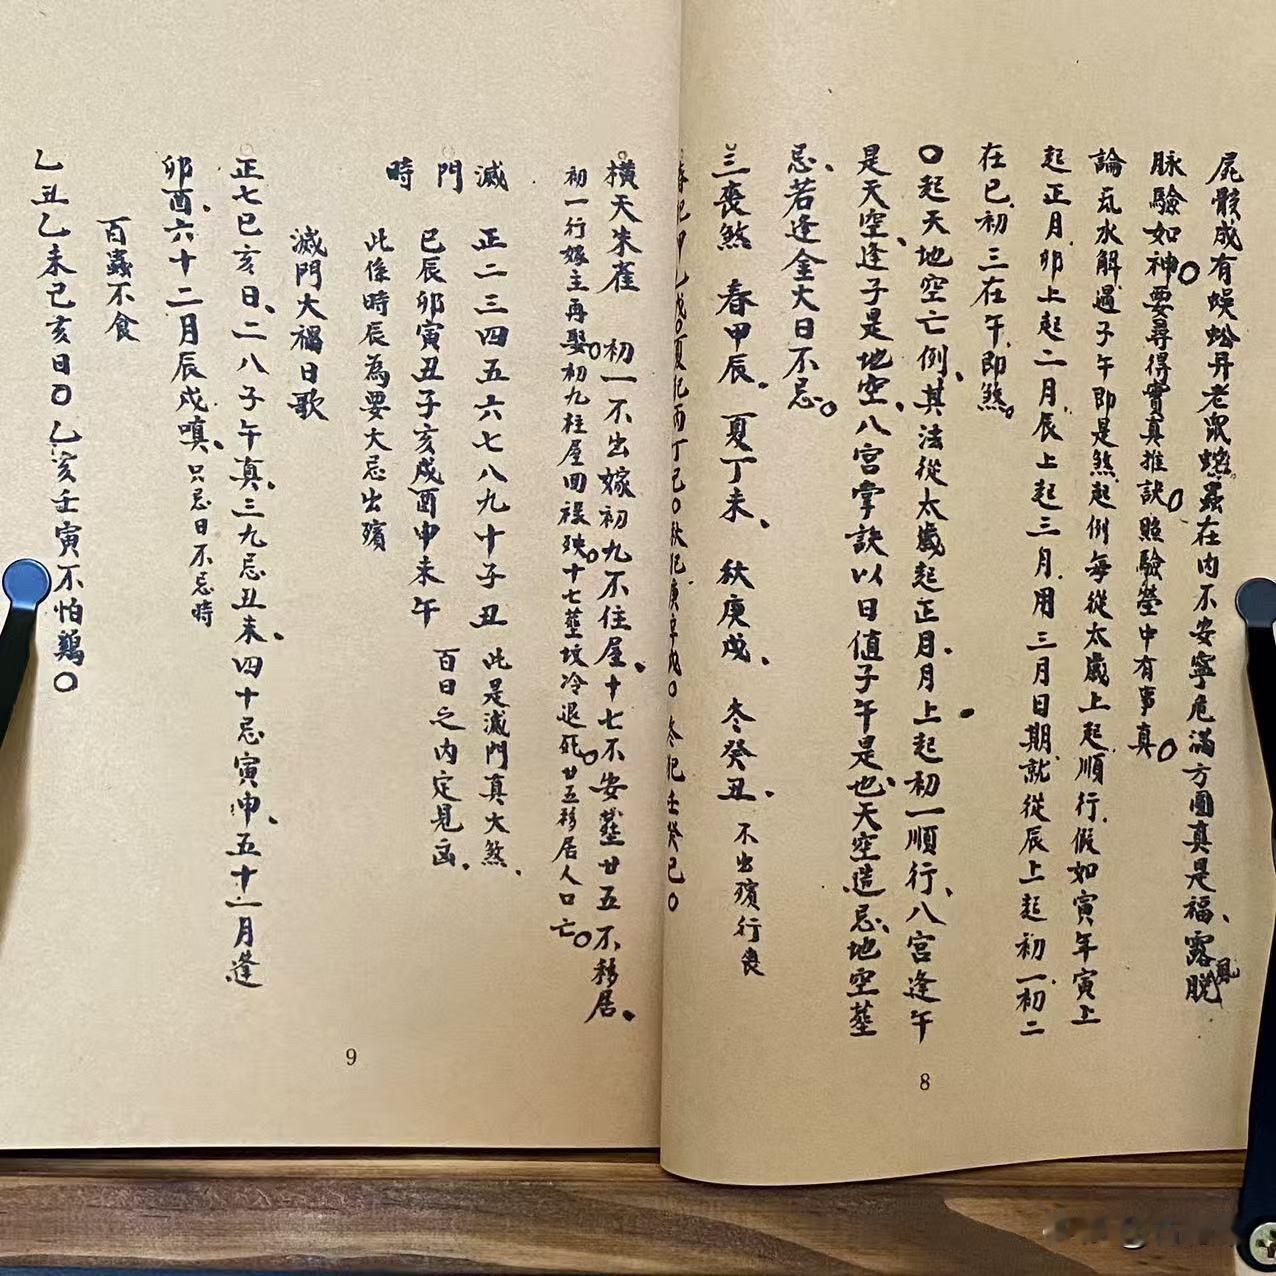 屍骸成有蜈蚣丹老鼠蛇蟲在內不安寧危滿方圓真是福、露風脫
脉驗如神○要尋得實真推訣○照驗塋中有事真○
論氣水解過子午即是煞起例每從太歲上起順行假如寅年寅上
起正月卯上起二月辰上起三月用三月日期就從辰上起初一初二
在巳初三在午即煞。
○起天地空亡例、其法從太歲起正月、月上起初一順行、八宮逢午
是天空、逢子是地空、八宮掌訣以日值子午是也、天空造忌、地空塟
忌、若逢金大日不忌。
三喪煞 春甲辰、夏丁未、秋庚戌、冬癸丑、不出殯行喪
8
橫天朱雀 初一不出嫁初九不住屋、十七不安塟廿五不移居、
初一行嫁主再娶○初九柱屋回祿殃○十七塟坟冷退死○廿五移居人口亡○
滅 正二三四五六七八九十子丑 此是滅門真大煞、
門 巳辰卯寅丑子亥戌酉申未午 百日之內定見凶、
時 此係時辰為要大忌出殯
滅門大禍日歌
正七巳亥日、二八子午真、三九忌丑未、四十忌寅申、五十一月逢
卯酉、六十二月辰戌嗔、只忌日不忌時
百蟲不食
乙丑乙未己亥日○乙亥壬寅不怕鷄○
9